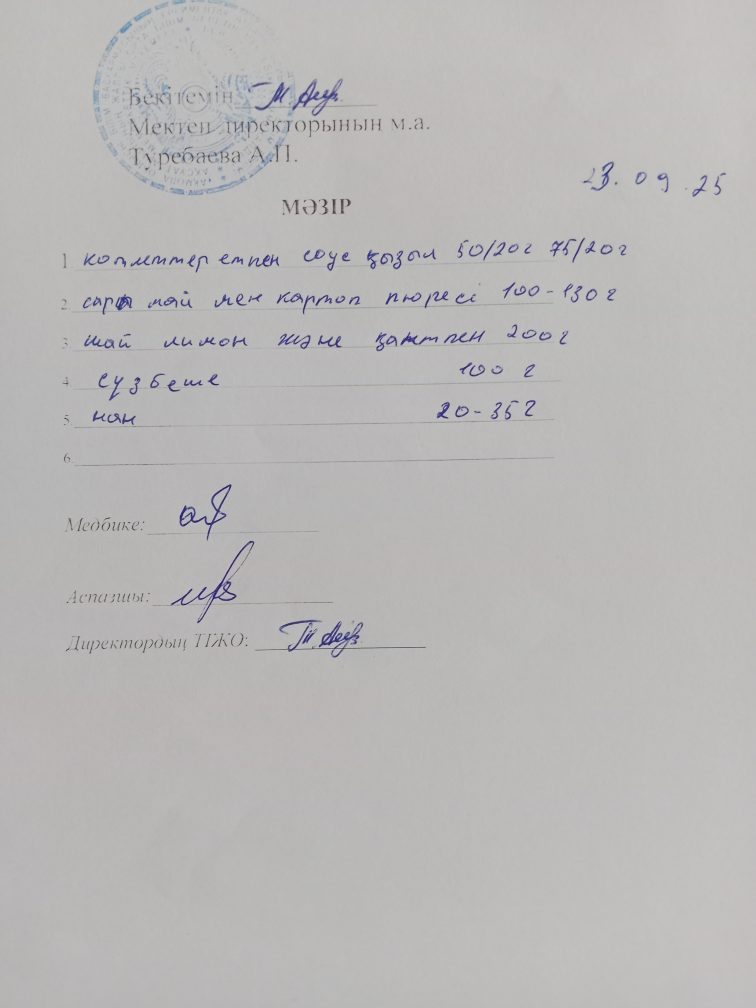 Бекітемін
Мектеп директорының м.а.
Туребаева А.П.
23.09.25
МӘЗІР
1. котлеттер етпен соус қызыл 50/20г 75/20г
2. сары май мен картоп пюресі 100-130г
3. шай лимон және қантпен 200г
4. сүзбеше 100 г
5. нан 20-35г
6.
Медбике:
Аспазшы:
Директордың ТІЖО: